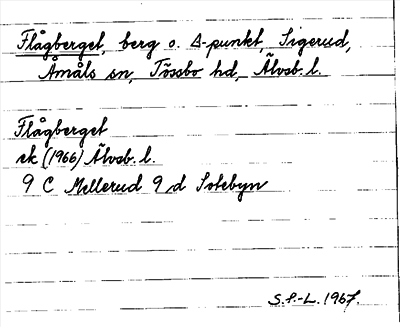 Flågberget, berg o. ∆-punkt, Sigerud,
Åmåls sn, Tössbo hd, Älvsb. l.
Flågberget
ek (1966) Älvsb. l.
9 C Mellerud 9 d Sotebyn
S.P.-L. 1967.